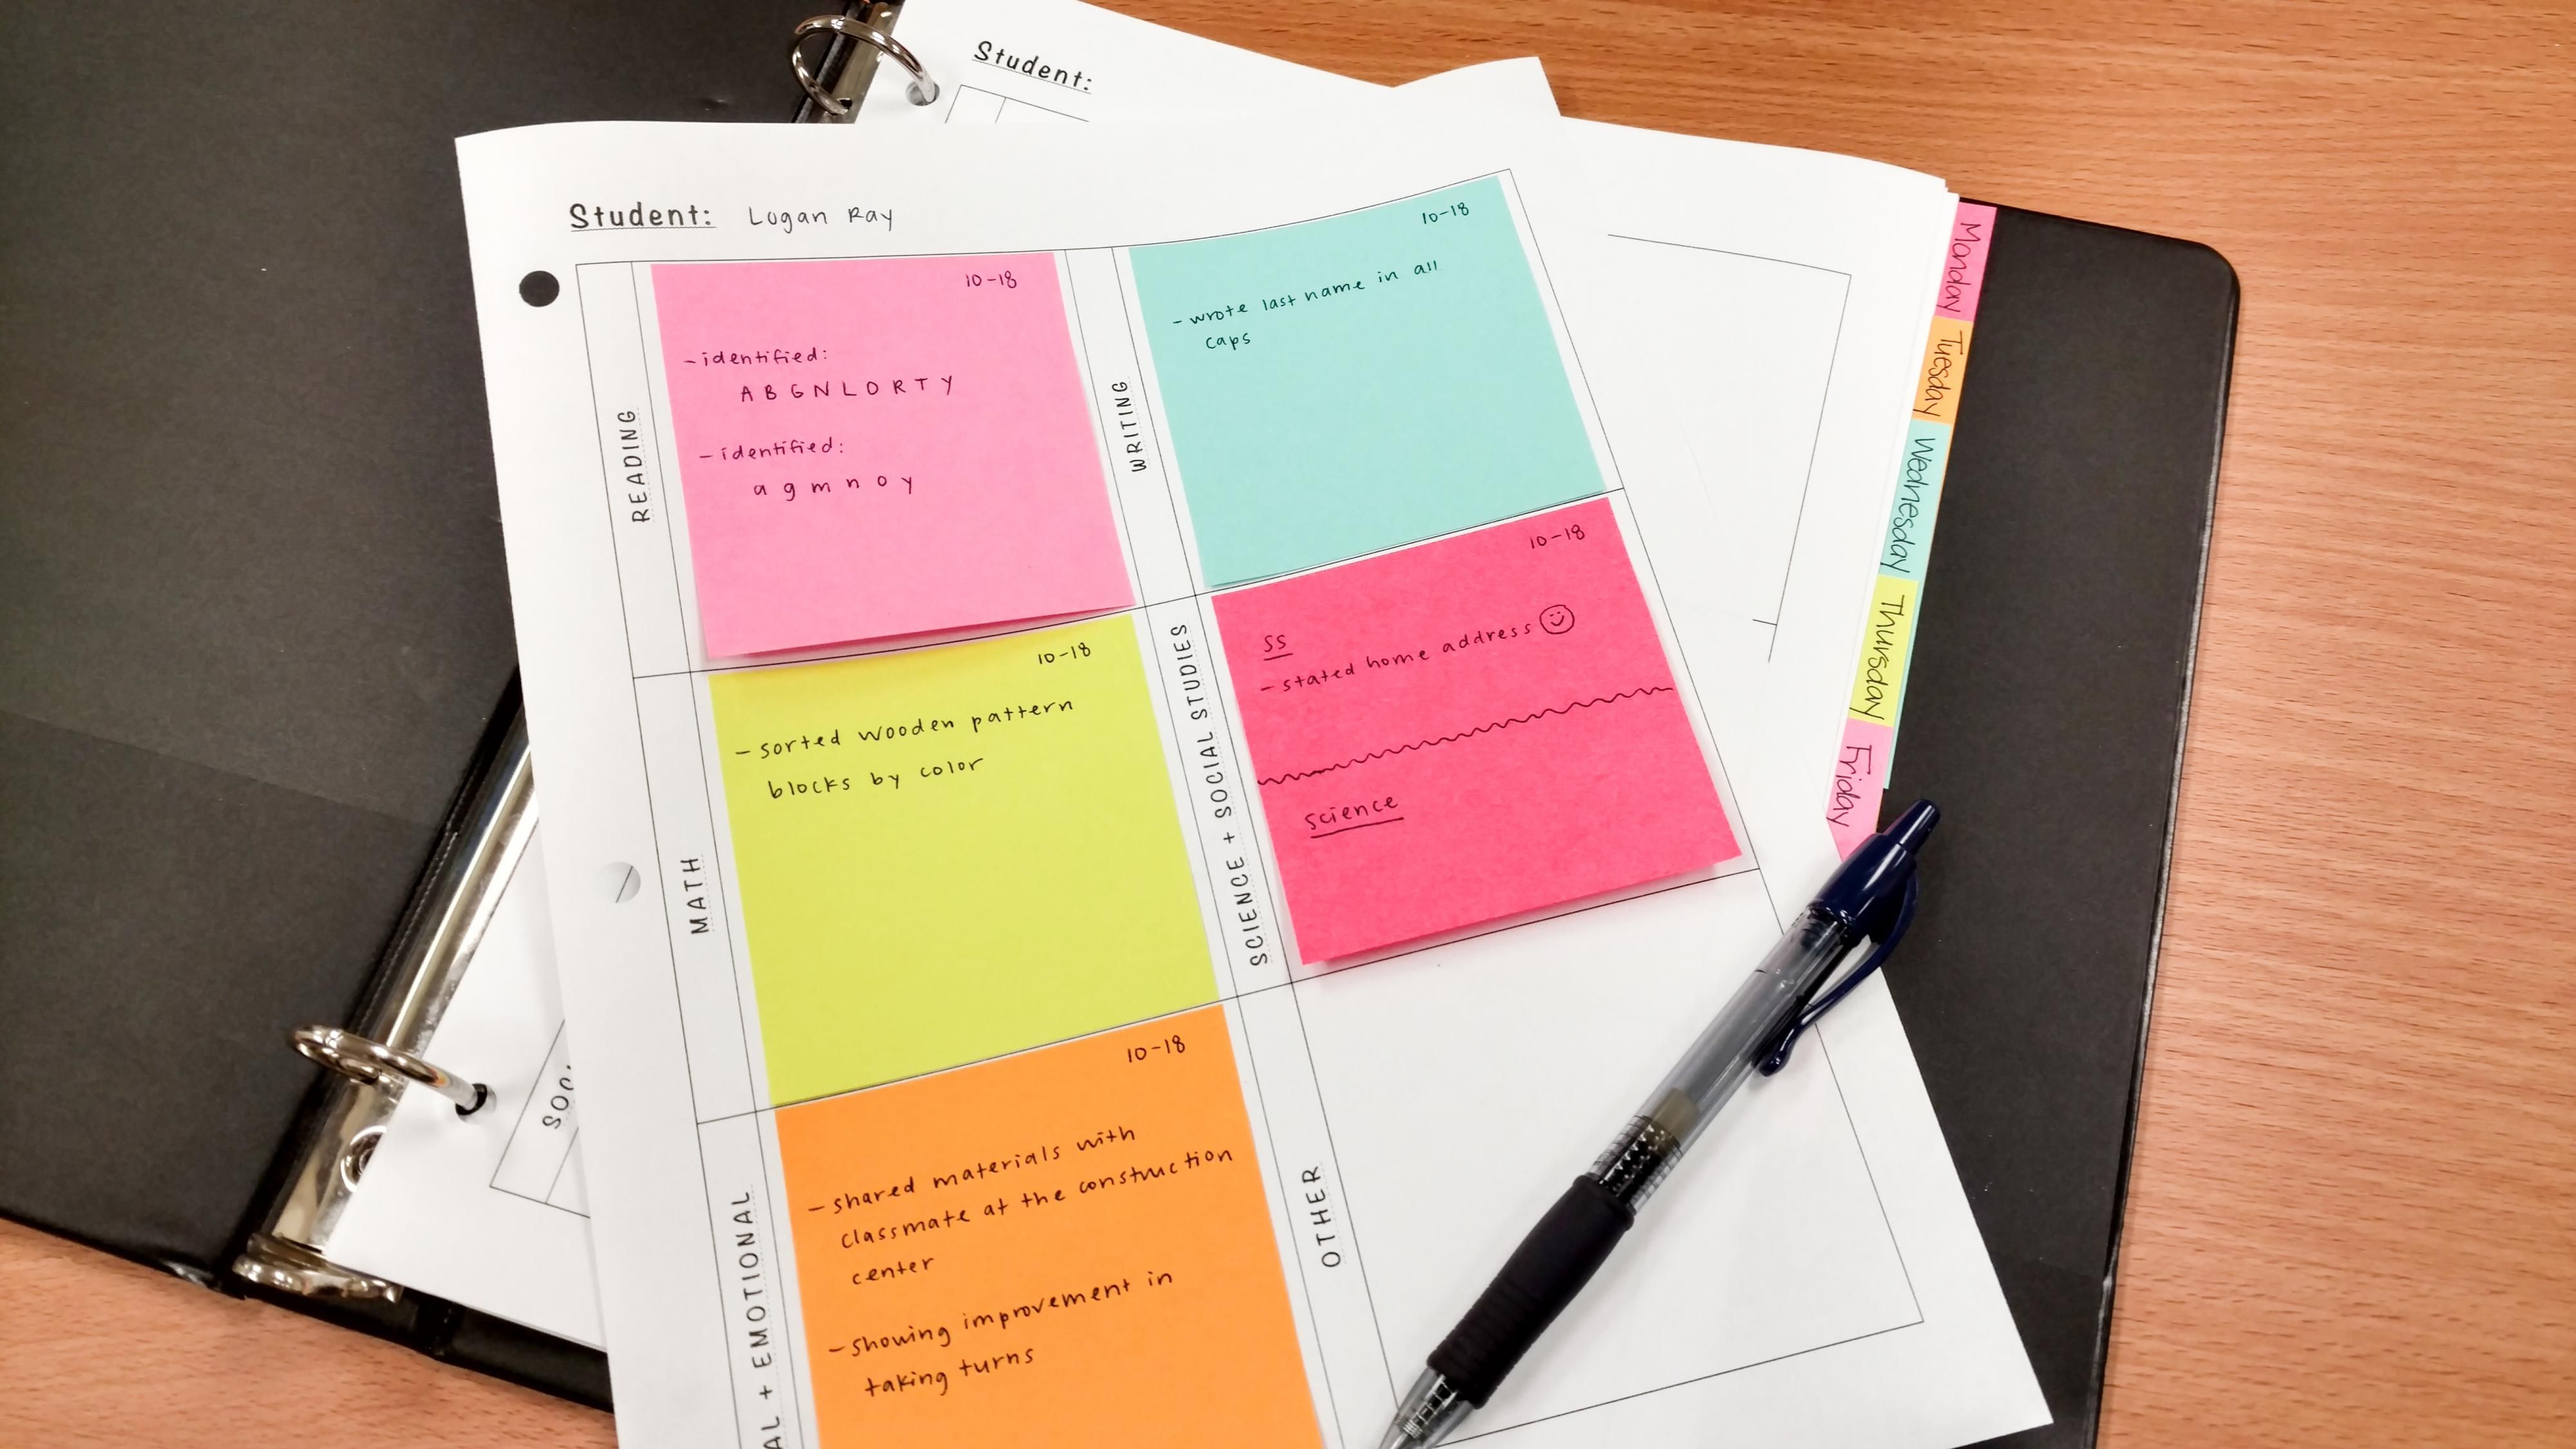 Student:
Student: Logan Ray
READING
10-18
- identified:
A B G N L O R T Y
- identified:
a g m n o y
WRITING
10-18
- wrote last name in all
caps
MATH
10-18
- sorted wooden pattern
blocks by color
SCIENCE + SOCIAL STUDIES
10-18
SS
- stated home address
science
AL + EMOTIONAL
10-18
- shared materials with
classmate at the construction
center
- showing improvement in
taking turns
OTHER
SOC
Monday
Tuesday
Wednesday
Thursday
Friday